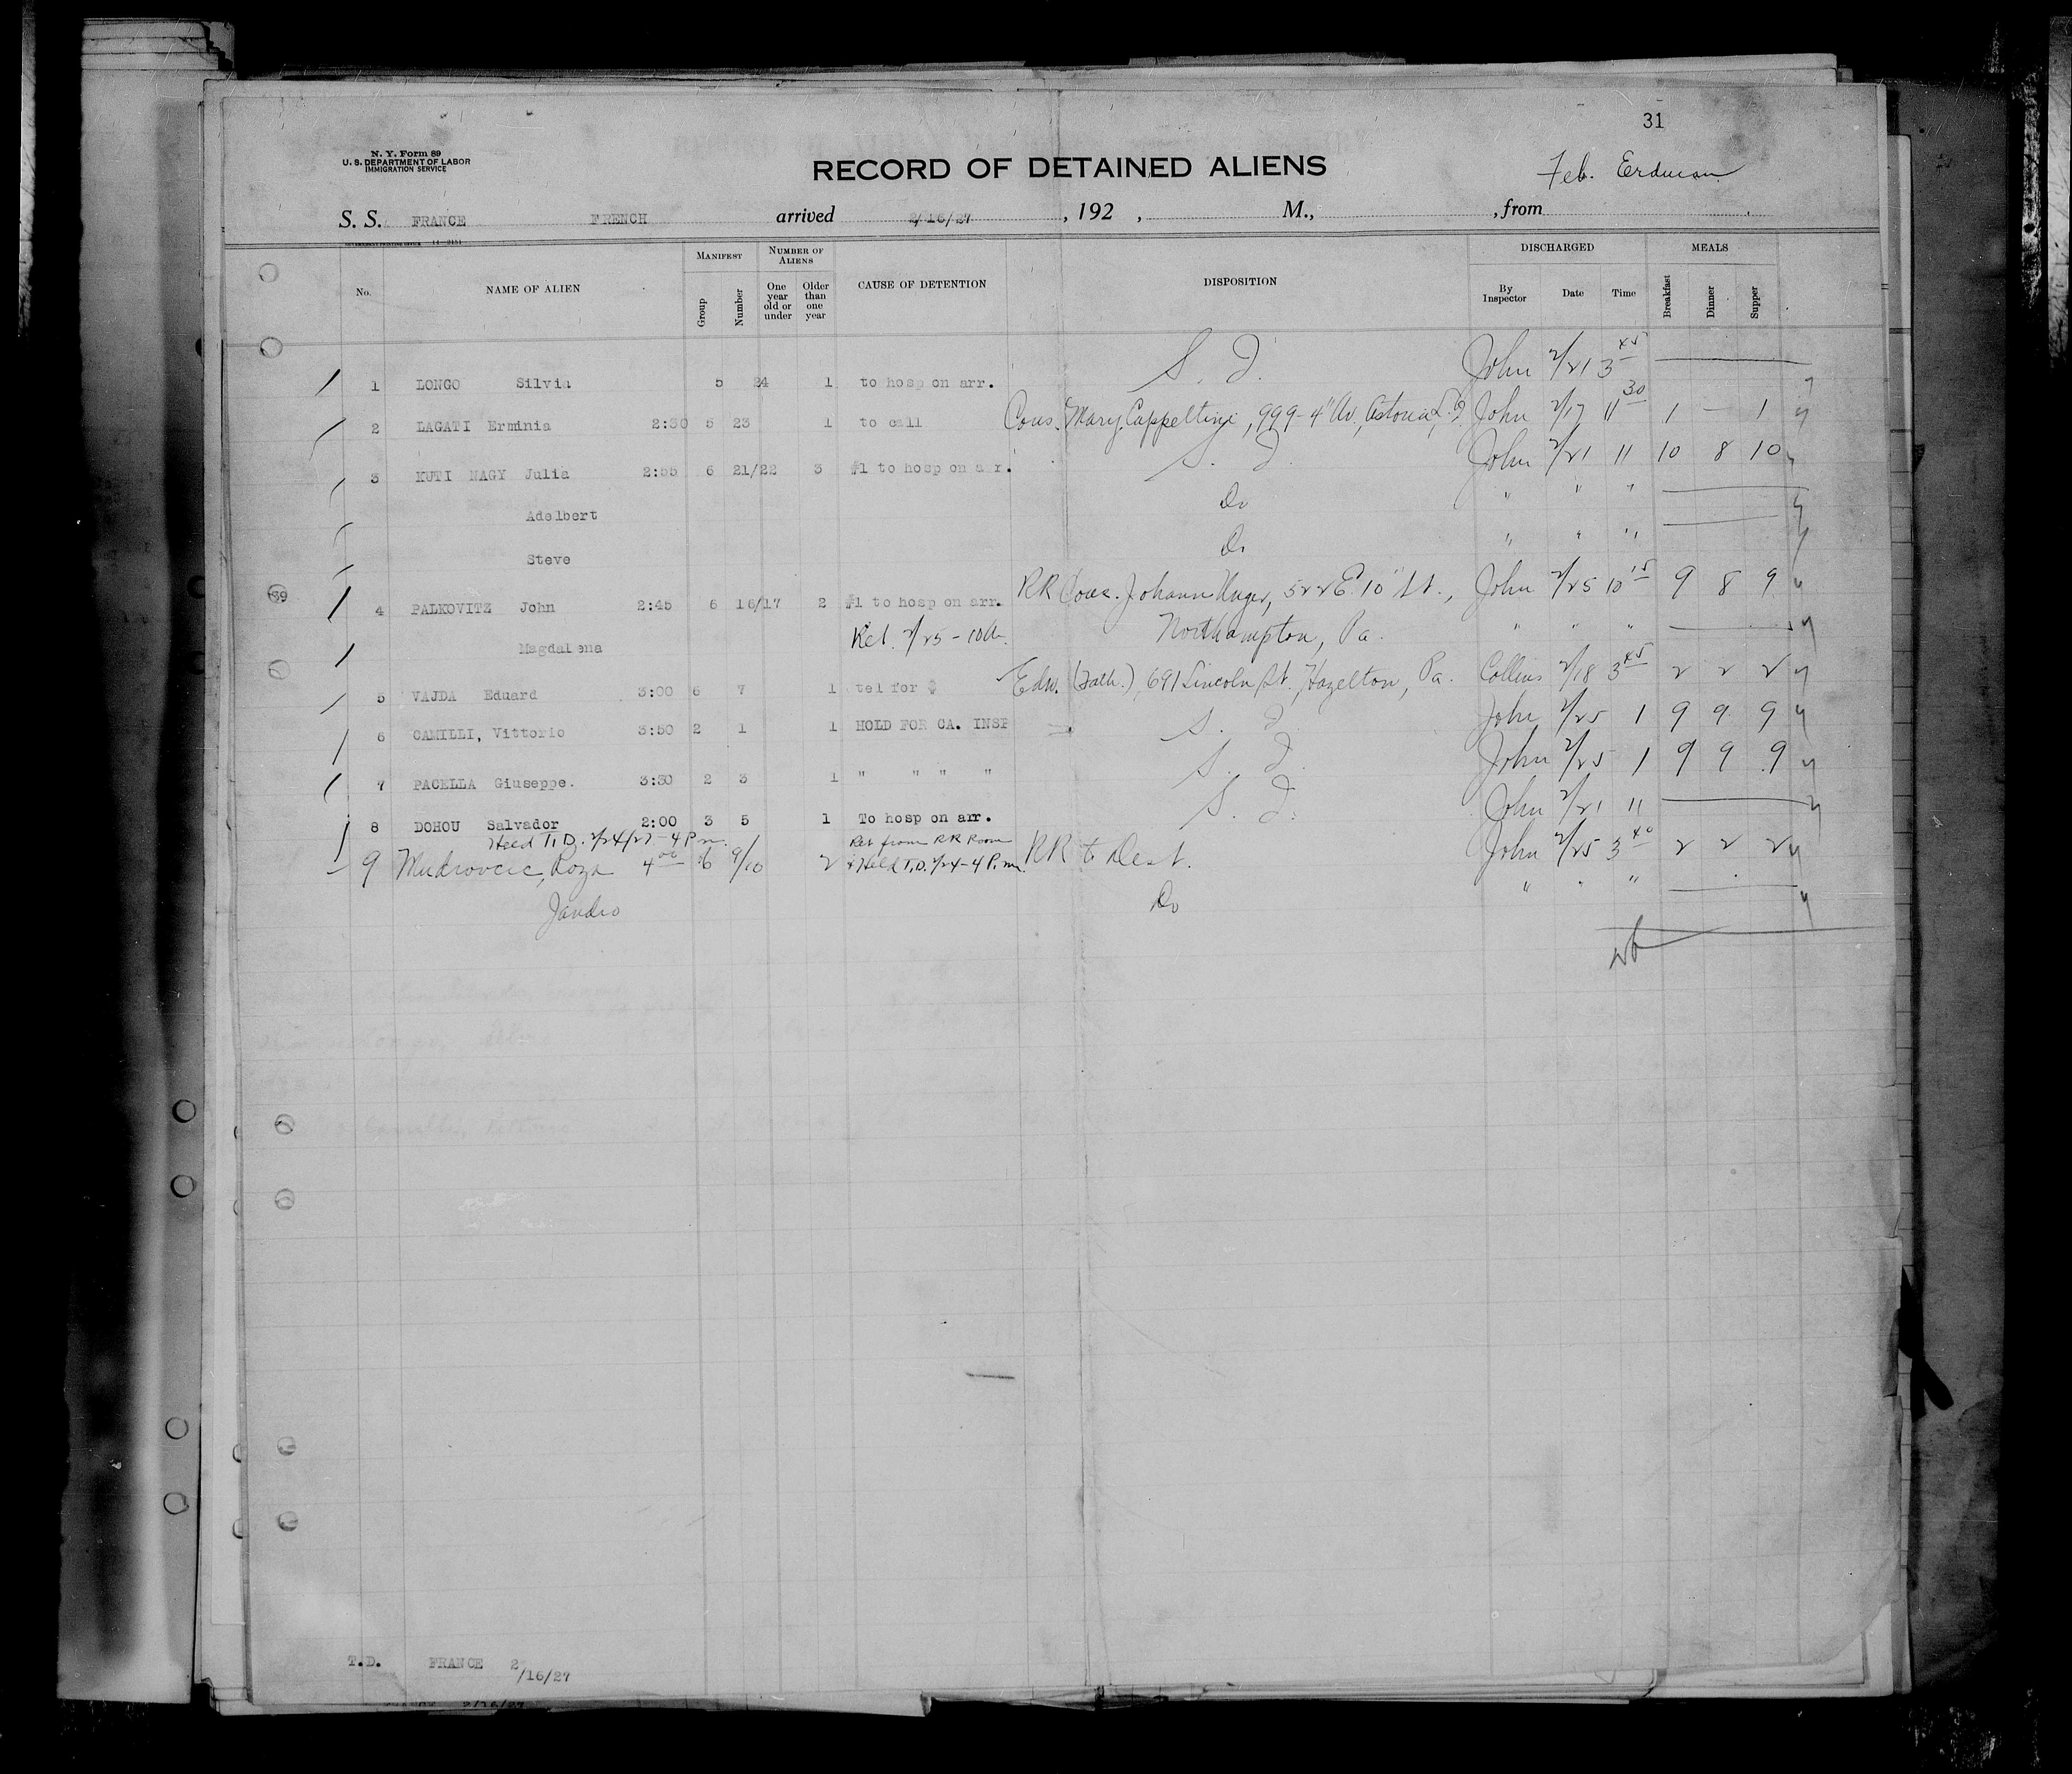 31
N. Y. Form 89
U. S. DEPARTMENT OF LABOR
IMMIGRATION SERVICE
RECORD OF DETAINED ALIENS
Feb. Erdman
S. S. FRANCE FRENCH arrived 2/16/27, 192 , M., , from
MANIFEST NUMBER OF ALIENS DISCHARGED MEALS
No. NAME OF ALIEN Group Number One year old or under Older than one year CAUSE OF DETENTION DISPOSITION By Inspector Date Time Breakfast Dinner Supper
1 LONGO Silvia 5 24 1 to hosp on arr. S. I. John 2/21 3 45
2 LAGATI Erminia 2:30 5 23 1 to call Cous. Mary Cappeltini, 999-4" Av., Astoria, L.I. John 2/17 11 30 1 — 1
3 KUTI NAGY Julia 2:55 6 21/22 3 #1 to hosp on arr. S. I. John 2/21 11 10 8 10
Adelbert Do " " "
Steve Do " " "
4 PALKOVITZ John 2:45 6 16/17 2 #1 to hosp on arr. RR Cous. Johann Unger, 522 E. 10" St., John 2/25 10 15 9 8 9
Magdalena Rel. 2/25 - 10 A. Northampton, Pa. " " "
5 VAJDA Eduard 3:00 6 7 1 tel for $ Edw. (Fath.), 691 Lincoln St., Hazelton, Pa. Collins 2/18 3 45 2 2 2
6 CAMILLI, Vittorio 3:50 2 1 1 HOLD FOR CA. INSP S. I. John 2/25 1 9 9 9
7 PACELLA Giuseppe. 3:30 2 3 1 " " " " S. I. John 2/25 1 9 9 9
8 DOHOU Salvador 2:00 3 5 1 To hosp on arr. S. I. John 2/21 11
Held T.D. 2/24/27 - 4 P.m. Ret from RR Room
9 Mudrovcic, Roza 4 00 6 9/10 2 & Held T.D. 2/24 - 4 P.m. RR to Dest. John 2/25 3 40 2 2 2
Jandro Do " " "
T.D. FRANCE 2
/16/27